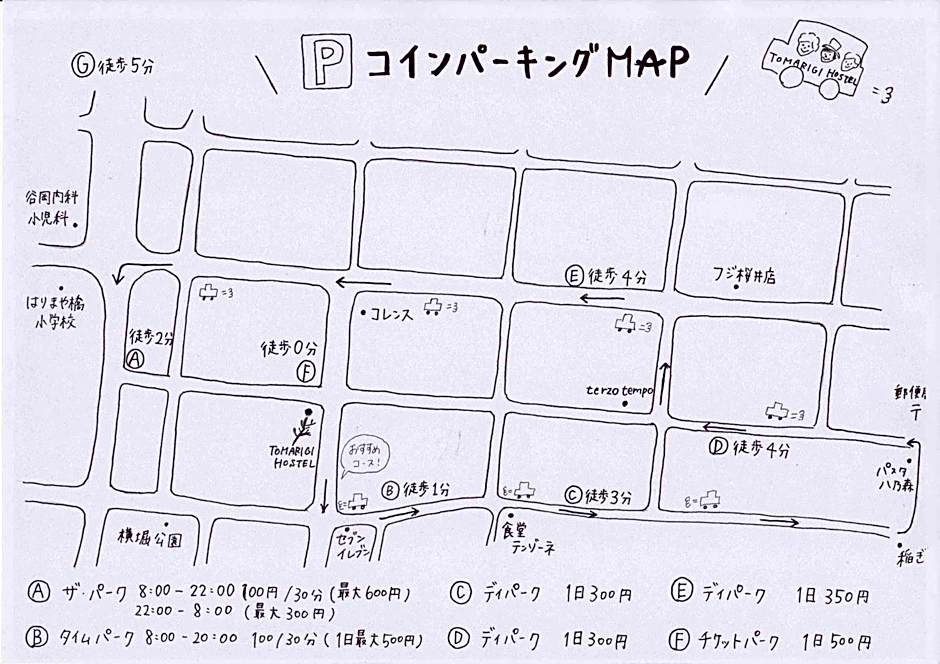 P コインパーキングMAP
TOMARIGI HOSTEL
=3
G 徒歩5分
谷岡内科
小児科
はりまや橋
小学校
徒歩2分
A
=3
徒歩0分
F
コレンス
=3
E 徒歩4分
フジ桜井店
=3
terzo tempo
=3
郵便
〒
D 徒歩4分
パスタ
八乃森
TOMARIGI
HOSTEL
おすすめ
コース!
B 徒歩1分
C 徒歩3分
横堀公園
セブン
イレブン
食堂
テンゾーネ
稲ぎ
A ザ・パーク 8:00-22:00 100円/30分(最大600円)
22:00-8:00 (最大300円)
B タイムパーク 8:00-20:00 100/30分(1日最大500円)
C ディパーク 1日300円
D ディパーク 1日300円
E ディパーク 1日350円
F チケットパーク 1日500円